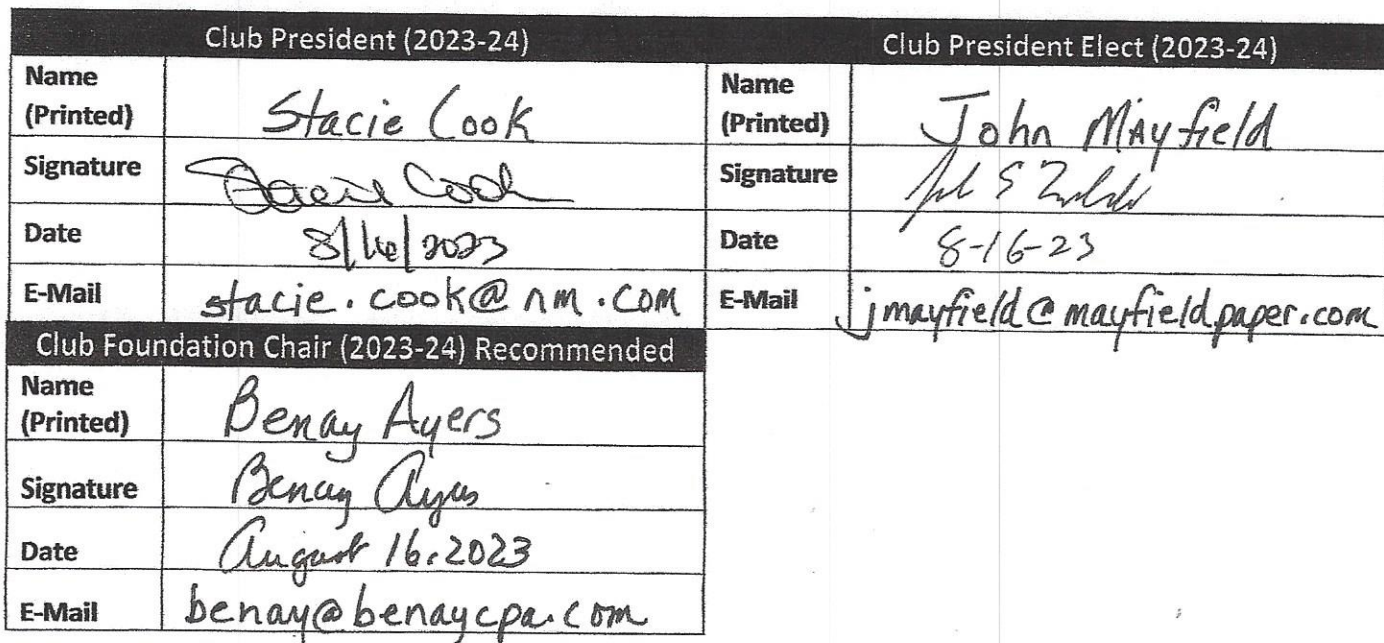 Club President (2023-24)
Name
(Printed)
Stacie Cook
Signature
Stacie Cook
Date
8/16/2023
E-Mail
stacie.cook@nm.com
Club President Elect (2023-24)
Name
(Printed)
John Mayfield
Signature
Date
8-16-23
E-Mail
jmayfield@mayfieldpaper.com
Club Foundation Chair (2023-24) Recommended
Name
(Printed)
Benay Ayers
Signature
Benay Ayers
Date
August 16, 2023
E-Mail
benay@benaycpa.com